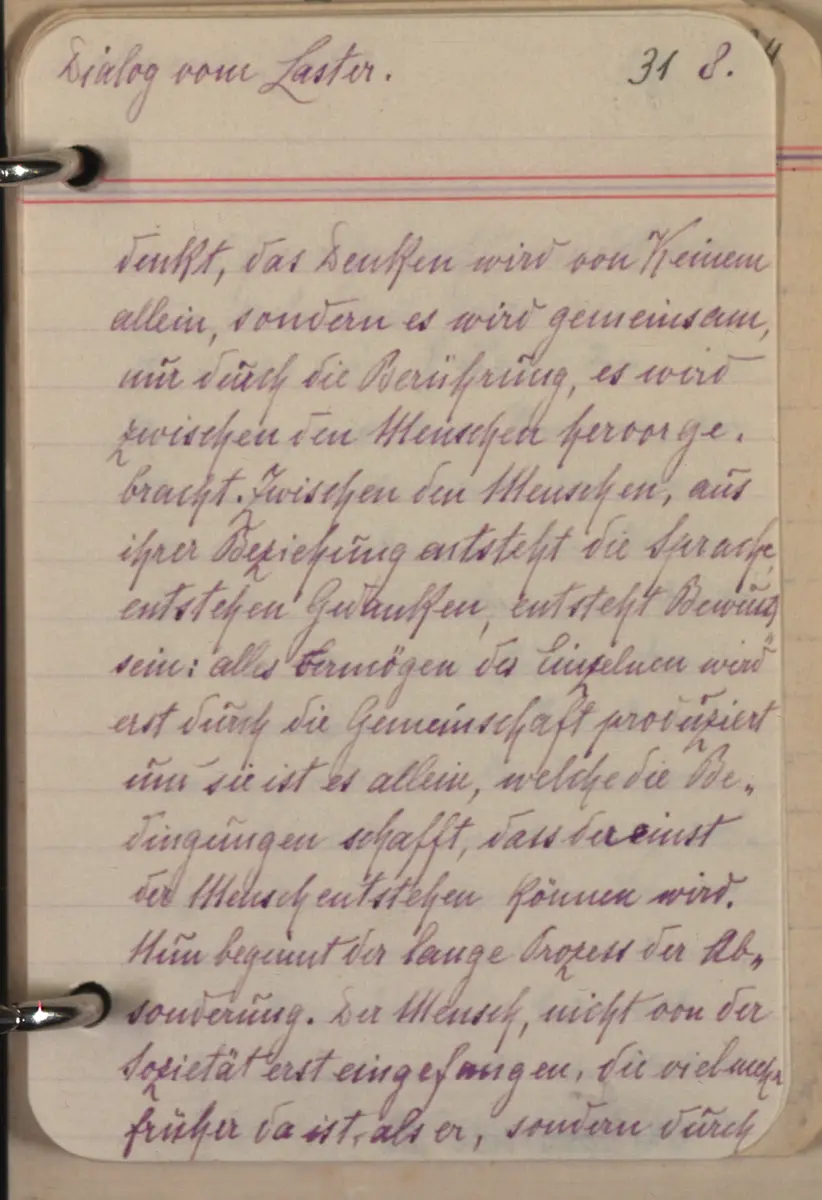 Dialog vom Laster. 31 8.
denkt, das Denken wird von Keinem
allein, sondern es wird gemeinsam,
nur durch die Berührung, es wird
zwischen den Menschen hervorge-
bracht. Zwischen den Menschen, aus
ihrer Beziehung entsteht die Sprache,
entstehen Gedanken, entsteht Bewusst-
sein: alles Vermögen des Einzelnen wird
erst durch die Gemeinschaft produziert
und sie ist es allein, welche die Be-
dingungen schafft, dass dereinst
der Mensch entstehen können wird.
Nun beginnt der lange Prozess der Ab-
sonderung. Der Mensch, nicht von der
Sozietät erst eingefangen, die vielmehr
früher da ist, als er, sondern durch